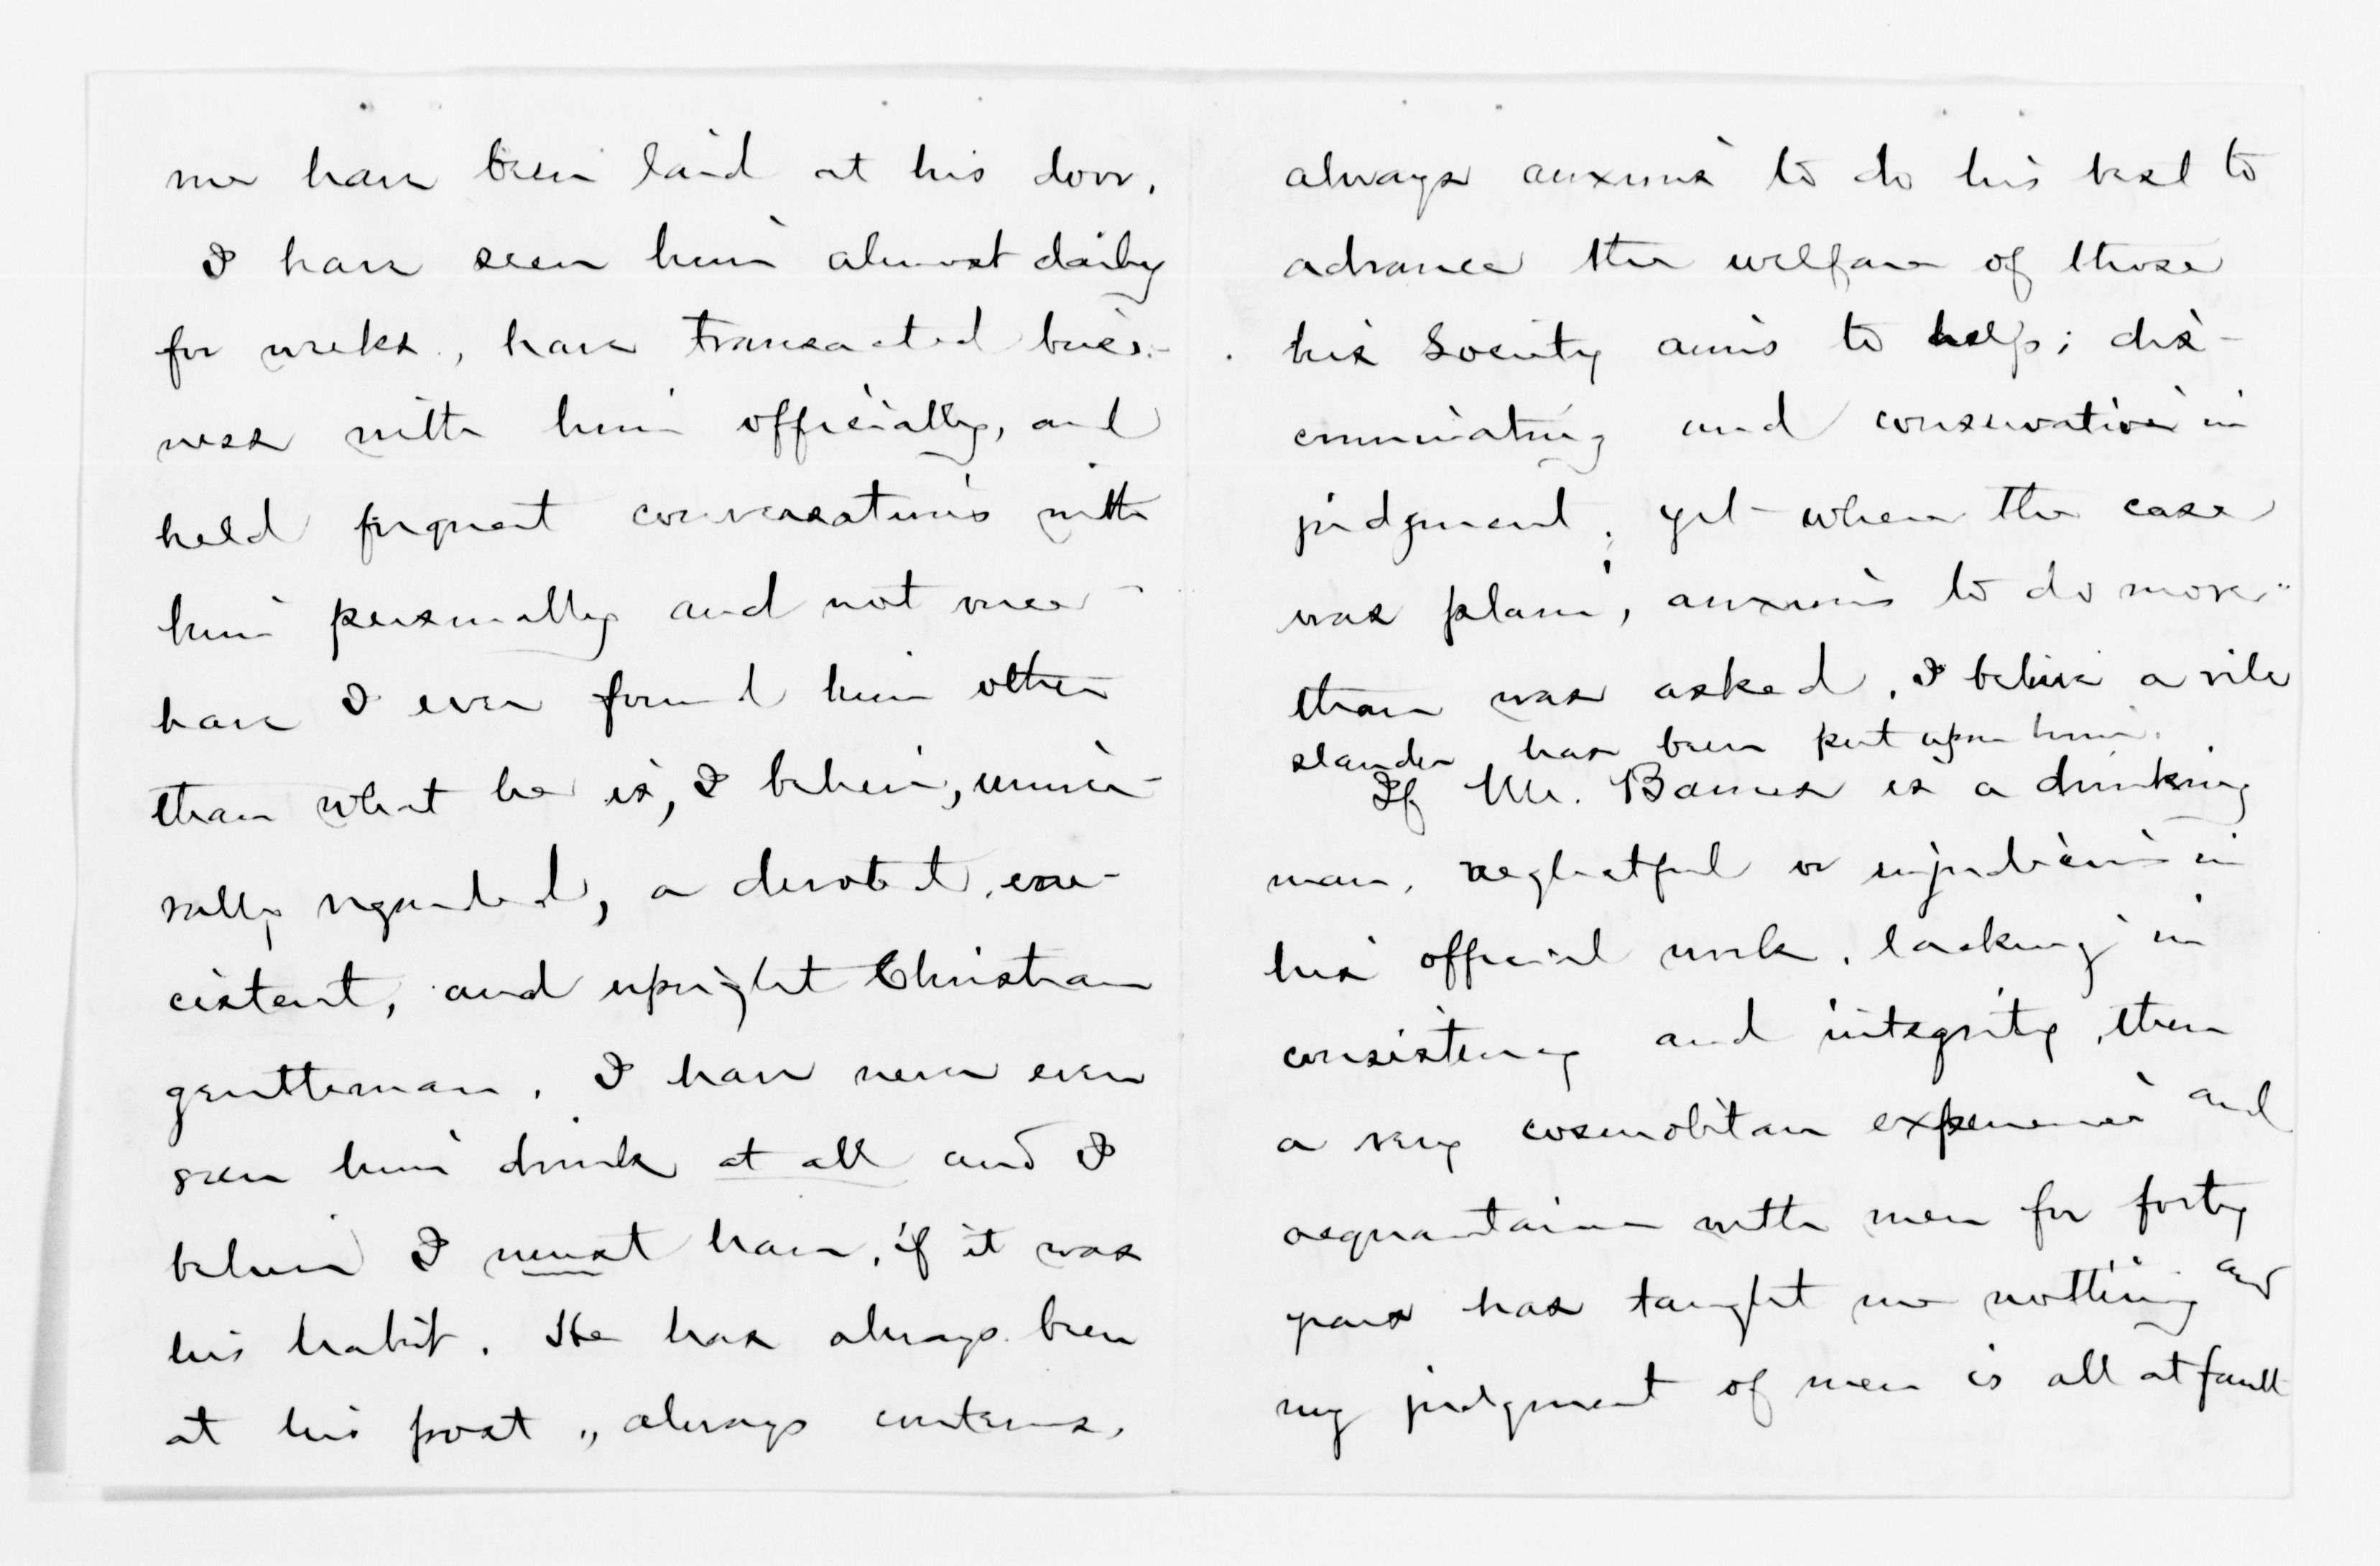 me have been laid at his door.
I have seen him almost daily
for weeks, have transacted busi-
ness with him officially, and
held frequent conversations with
him personally and not once
have I ever found him other
than what he is, I believe, univer-
sally regarded, a devoted, con-
cistent, and upright Christian
gentleman. I have never even
seen him drink at all and I
believe I must have, if it was
his habit. He has always been
at his post, always courteous,
always anxious to do his best to
advance the welfare of those
his Society aims to help; dis-
criminating and conservative in
judgment; yet when the case
was plain, anxious to do more
than was asked. I believe a vile
slander has been put upon him.
If Mr. Barnes is a drinking
man, neglectful or injudicious in
his official work, lacking in
consistency and integrity, then
a very cosmopolitan experience and
acquaintance with men for forty
years has taught me nothing and
my judgment of men is all at fault